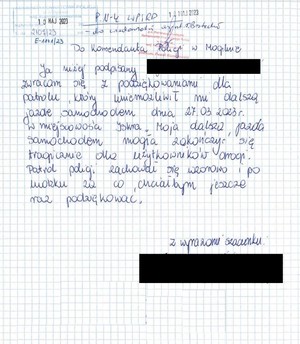 10 MAJ 2023
E-1111/23
Do Komendanta Policji w Mogilnie
Ja niżej podpisany
zwracam się z podziękowaniami dla
patrolu, który uniemożliwił mi dalszą
jazdę samochodem dnia 27.03.2023r.
w miejscowości Iskra. Moja dalsza jazda
samochodem mogła zakończyć się
tragicznie dla użytkowników drogi.
Patrol policji zachował się wzorowo i po
ludzku za co chciałbym jeszcze
raz podziękować.
z wyrazami szacunku